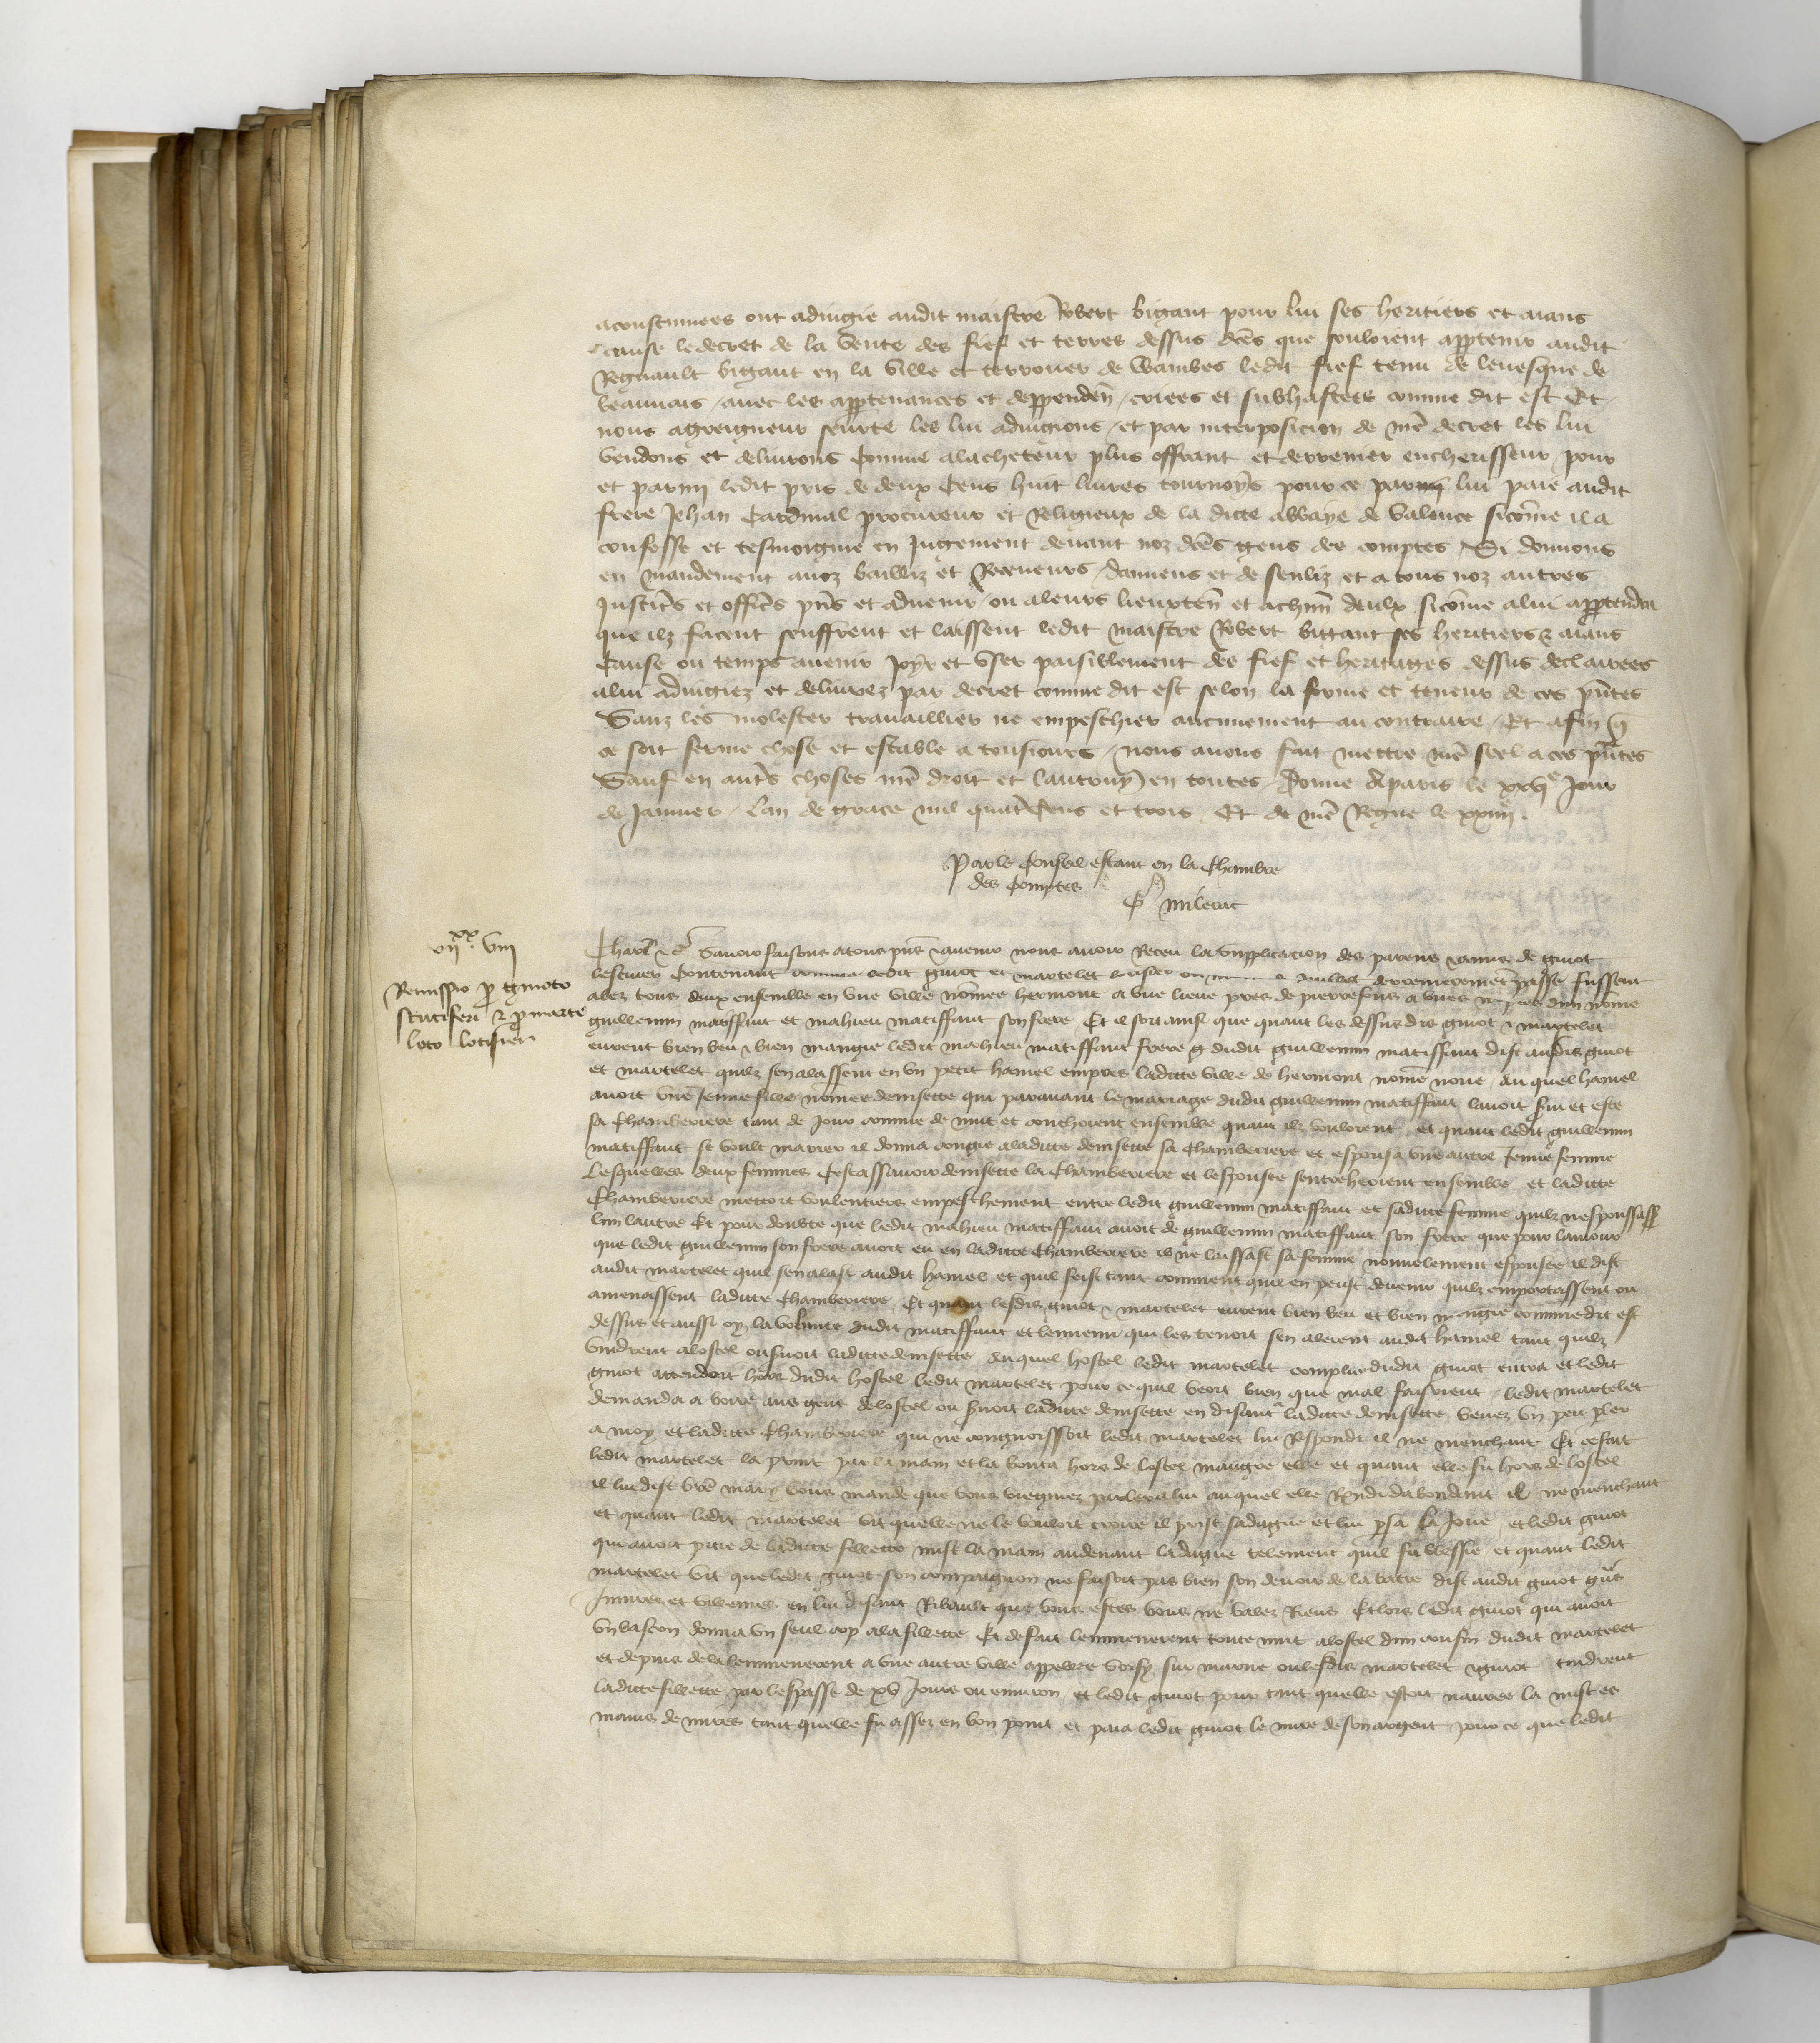 acoustumees ont adiugie audit maistre Robert bigant pour lui ses heritiers et aians
cause le decret de la vente des fief et terres dessus dēs que souloient apptenir audit
Regnault bigant en la ville et terrouer de Wambes ledit fief tenu de levesque de
beauuais / auec les apptenances et deppenden̄ / criees et subhastees comme dit est Et
nous a greigneur seurte les lui adiugions / et par interposicion de nr̄e decret les lui
vendons et deliurons Comme alacheteur plus offrant et derrenier encherisseur / pour
et parmi ledit pris de deux Cens huit liures tournoys pour ce par lui paie audit
frere Jehan Cardinal procureur et Religieux de la dicte abbaye de Valence sicōme il a
confesse et tesmoigne en Jugement deuant noz dēs gens des comptes / Si donnons
en mandement aux bailliz et Receueurs damiens et de senliz et a tous noz autres
Justic̄s et offic̄s pn̄s et aduenir / ou a leurs lieuxten̄ et a chūn deulx sicōme a lui apptendra
que ilz facent seuffrent et laissent ledit maistre Robert bigant ses heritiers & aians
Cause ou temps auenir Joyr et vser paisiblement des fief et heritages dessus declairees
a lui adiugiez et deliurez par decret comme dit est selon la forme et teneur de ces pn̄tes
Sanz les molester trauaillier ne empeschier aucunement au contraire / Et afin q̄
ce soit ferme chose et estable a tousiours / nous auons fait mettre nr̄e seel a ces pn̄tes
Sauf en autrs choses nr̄e droit et lautruy en toutes / Donne A paris le xxvjᵉ Jour
de Januier / Lan de grace mil quatrecens et trois / Et de nr̄e Regne le xxiiij.
Par le Conseil estant en la Chambre
des Comptes
G milerat
vijˣˣ viij
Remissio p guioto
scutiferi & p marte
loto lotisier
Charl &c Sauoir faisons a tous pn̄s & auenir nous auoir Receu la Supplicacion des parens & amis de guiot
lescuier Contenant comme ledit guiot et martelet derrenierement passe fussent
alez tous deux ensemble en vne ville nōmee hermont a vne lieue pres de pierrefons a dun nōme
guillemin matiffaut et mahieu matiffaut son frere Et il soit ainsi que quant les dessus dis guiot & martelet
eurent bien beu & bien mangie ledit mahieu matiffaut frere dudit guillemin matiffaut dist ausdis guiot
et martelet quilz sen alassent en vn petit hamel empres ladicte ville de hermont nōme noue / Au quel hamel
auoit vne Jenne fille nōmee denisette qui parauant le mariage dudit guillemin matiffaut lauoit serui et este
sa Chamberiere tant de Jour comme de nuit et couchoient ensemble quant ilz vouloient / et quant ledit guillemin
matiffaut se voult marier il donna congie a ladicte denisette sa Chamberiere et espousa vne autre Jenne femme
Lesquelles deux femmes Cestassauoir denisette la Chamberiere et lespousee sentreheoient ensemble et ladicte
Chamberiere mettoit voulentiers empeschement entre ledit guillemin matiffaut et sadicte femme quilz nespousass
lun lautre Et pour doubte que ledit mahieu matiffaut auoit de guillemin matiffaut son frere que pour lamour
que ledit guillemin son frere auoit eu en ladicte Chamberiere il ne laissast sa femme nouuelement espousee il dist
audit martelet quil sen alast audit hamel et quil feist tant comment quil en peust deuenir quilz emportassent ou
amenaissent ladicte Chamberiere / Et quant lesdis guiot & martelet eurent bien beu et bien mangie comme dit est
dessus et aussi oy la volunte dudit matiffaut et lennemi qui les tenoit sen alerent audit hamel tant quilz
vindrent a lostel ou seruoit ladicte denisette Au quel hostel ledit martelet complice dudit guiot entra et ledit
guiot attendoit hors dudit hostel ledit martelet pour ce quil veoit bien que mal faisoient / ledit martelet
demanda a boire aus gens de lostel ou seruoit ladicte denisette en disant a ladicte denisette venez vn peu pler
a moy et ladicte Chamberiere qui ne congnoissoit ledit martelet lui Respondi il ne menchaut Et ce fait
ledit martelet la print par la main et la bouta hors de lostel maugre elle et quant elle fu hors de lostel
il lui dist vr̄e mary vous mande que vous viegniez parler a lui auquel elle Rendi dabondant il ne menchaut
et quant ledit martelet vit quelle ne le vouloit croire il prist sa dague et lui persa la Joue / et ledit guiot
qui auoit pitie de ladicte fillette mist la main au deuant la dague telement quil fu blessie et quant ledit
martelet vit que ledit guiot son compaignon ne faisoit pas bien son deuoir de la batre dist audit guiot gr̄s
Jniures et villenies en lui disant Ribault que vous estes vous ne valez Riens Et lors ledit guiot qui auoit
vn baston donna vn seul cop a la fillette Et de fait lemmenerent toute nuit a lostel dun cousin dudit martelet
et depuis de la lemmenerent a vne autre ville appellee Sorsy sur marne ou lesdis martelet & guiot tindrent
ladicte fillette par lespasse de xv Jours ou enuiron / et ledit guiot pour tant quelle estoit nauree la mist es
mains de mires tant quelle fu assez en bon point et paia ledit guiot le mire de son argent pour ce que ledit